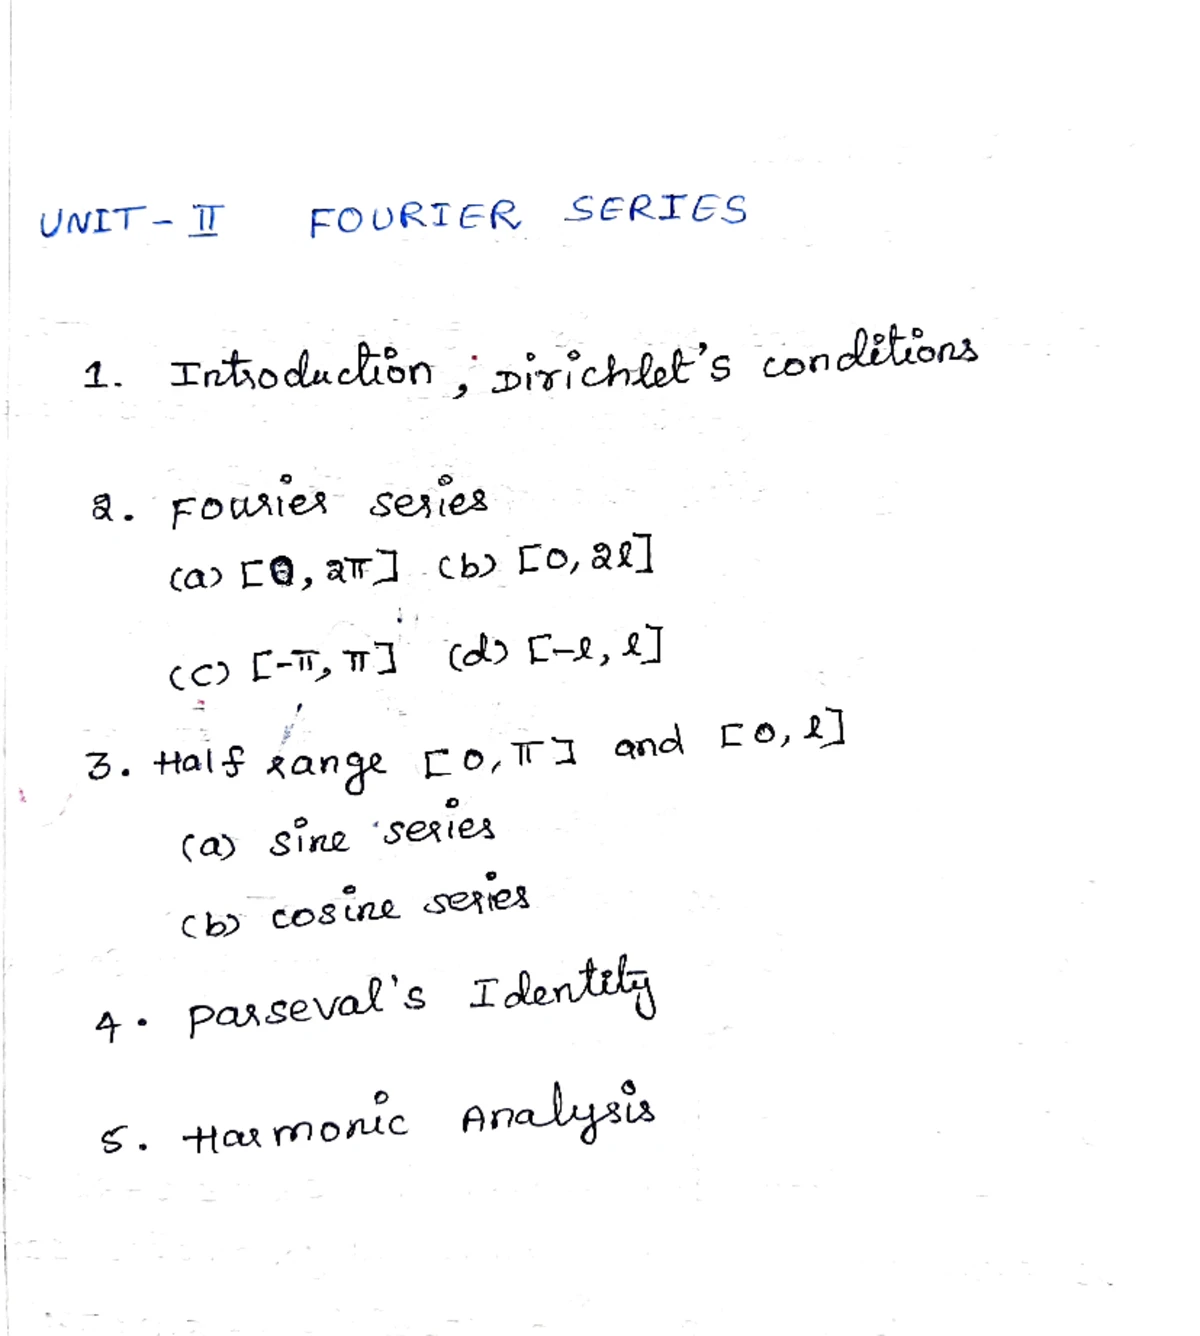 UNIT - II FOURIER SERIES
1. Introduction ; Dirichlet's conditions
2. Fourier series
(a) [0, 2π] (b) [0, 2l]
(c) [-π, π] (d) [-l, l]
3. Half range [0, π] and [0, l]
(a) sine series
(b) cosine series
4. Parseval's Identity
5. Harmonic Analysis